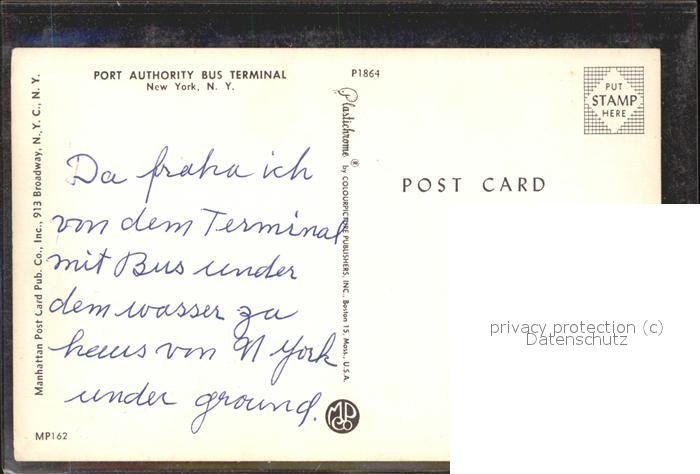 PORT AUTHORITY BUS TERMINAL
New York, N. Y.
P1864
PUT
STAMP
HERE
POST CARD
Manhattan Post Card Pub. Co., Inc., 913 Broadway, N.Y.C., N. Y.
Plastichrome ® by COLOURPICTURE PUBLISHERS, INC., Boston 15, Mass., U.S.A.
Da fraha ich
von dem Terminal
mit Bus under
dem wasser zu
haus von N York
under ground.
MP
CO
MP162
privacy protection (c)
Datenschutz